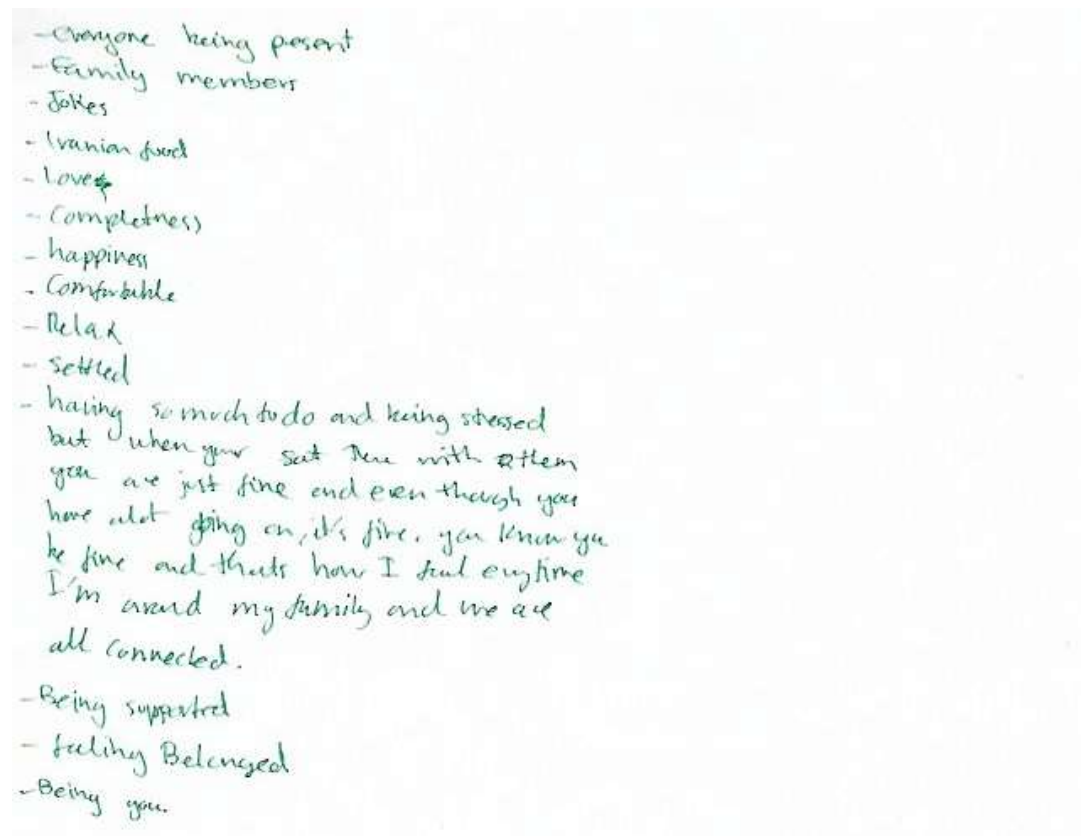 - everyone being present
- Family members
- Jokes
- Iranian food
- Love
- Completness
- happiness
- Comfortable
- Relax
- settled
- having so much to do and being stressed
but when your sat there with them
you are just fine and even though you
have alot going on, it's fine. you know you
be fine and thats how I feel everytime
I'm around my family and we are
all connected.
- Being supported
- feeling Belonged
- Being you.